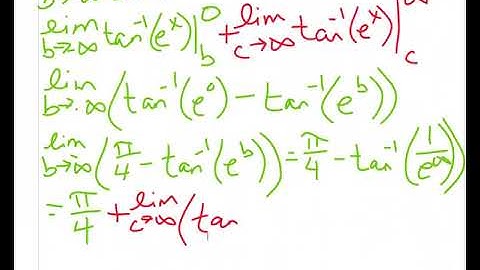 lim b→-∞ tan⁻¹(eˣ)|₀ᵇ + lim c→∞ tan⁻¹(eˣ)| c
lim b→-∞ (tan⁻¹(e⁰) - tan⁻¹(eᵇ))
lim b→-∞ (π/4 - tan⁻¹(eᵇ)) = π/4 - tan⁻¹(1/e^∞))
= π/4 + lim c→∞ (tan